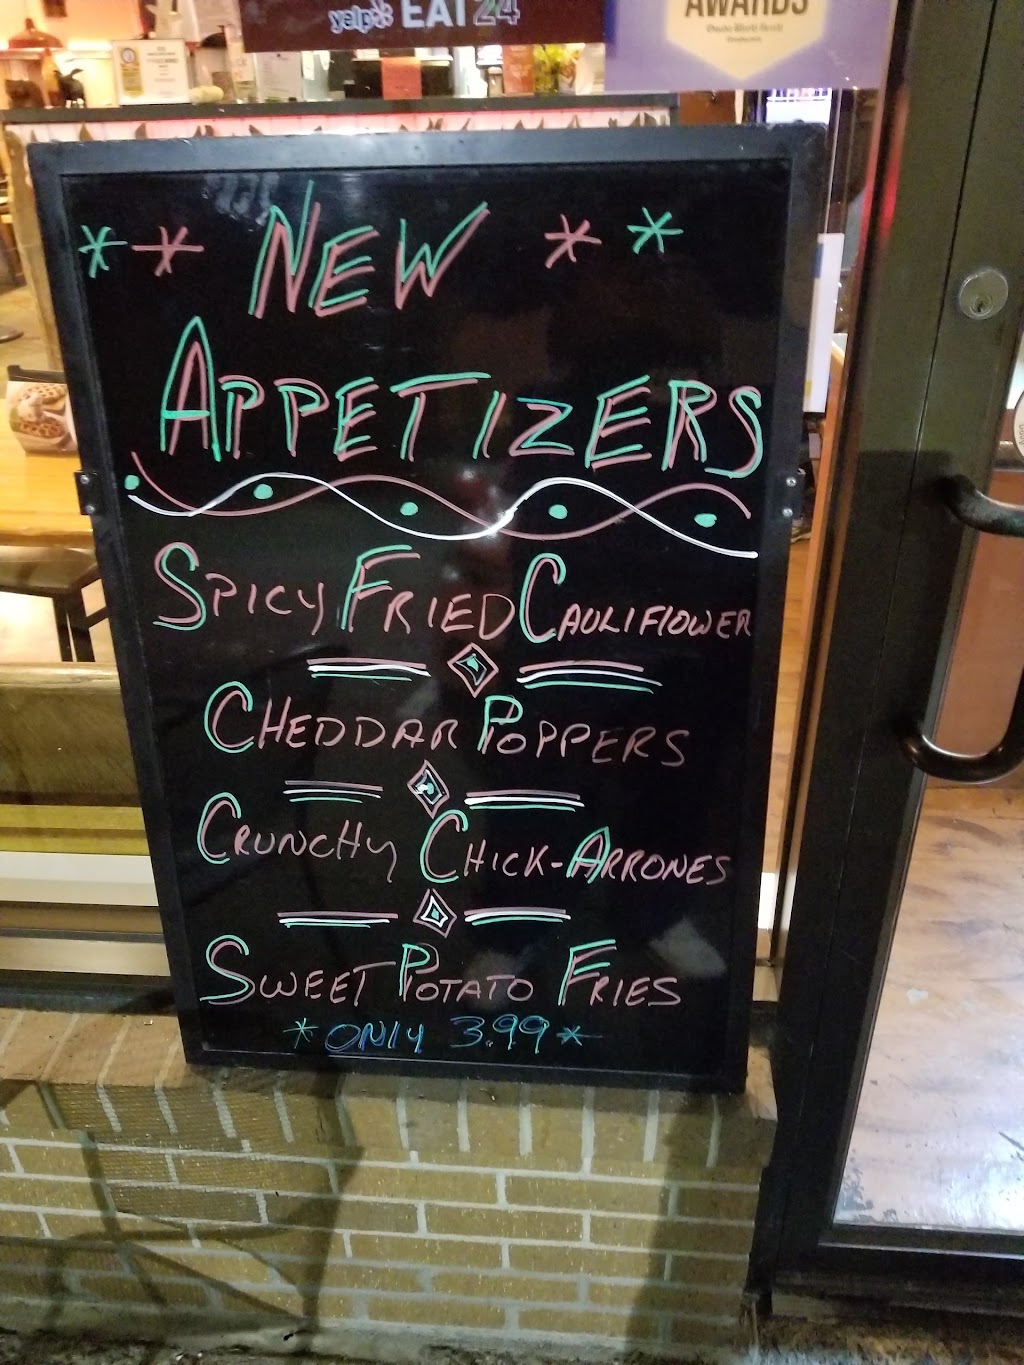 yelp EAT24
AWARDS
Omaha World-Herald
** NEW **
APPETIZERS
SPICY FRIED CAULIFLOWER
CHEDDAR POPPERS
CRUNCHY CHICK-ARRONES
SWEET POTATO FRIES
*ONLY 3.99*